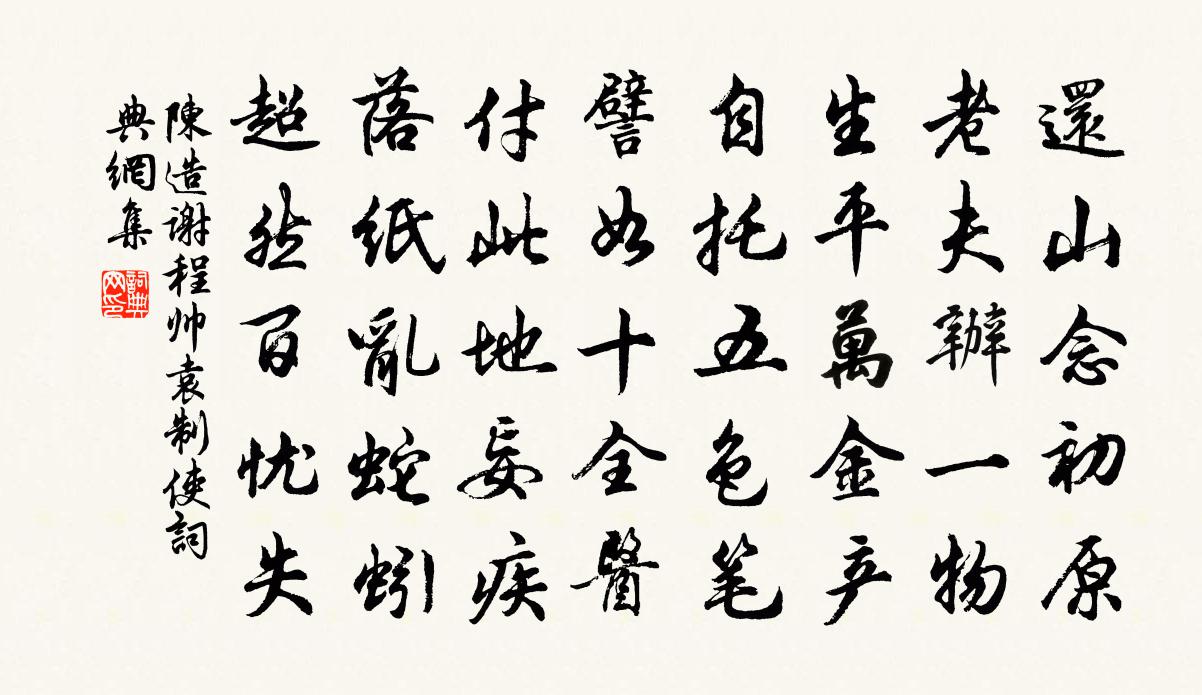 還山念初原
老夫辦一物
生平萬金产
自托五色笔
譬如十全醫
付此地妄疾
落纸亂蛇蚓
超然百忧失
陳造谢程帅袁制使詞
典網集
詞典网印